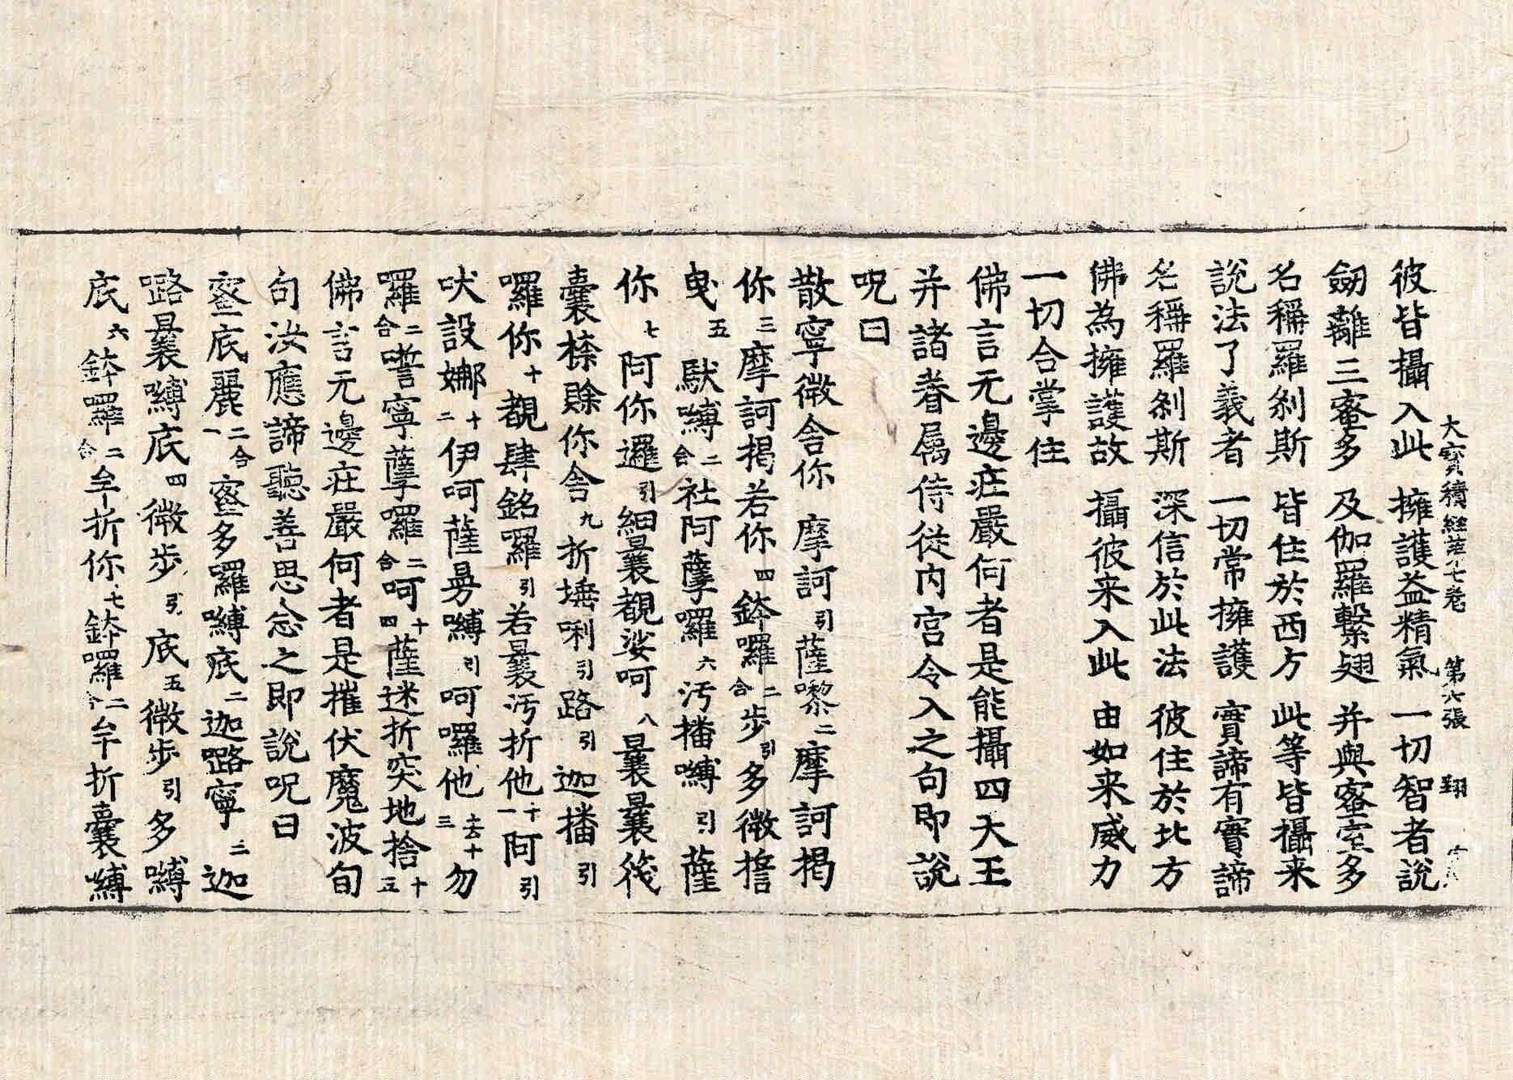 大寶積經苐七卷 第六張 翔
彼皆攝入此 擁護益精氣 一切智者說
劒離三蜜多 及伽羅繫翅 并與蜜室多
名稱羅刹斯 皆住於西方 此等皆攝来
說法了義者 一切常擁護 實諦有實諦
名稱羅刹斯 深信於此法 彼住於北方
佛為擁護故 攝彼来入此 由如来威力
一切合掌住
佛言无邊庄嚴何者是能攝四大王
并諸眷属侍従内宫令入之句即說
呪曰
散寧微舍你 摩訶引薩嚟二摩訶揭
你三摩訶揭若你四鉢囉二合步引多微擔
曳五 馱嚩二合社阿薩囉六汚播嚩引薩
你七阿你邏引細曩覩娑呵八曩曩筏
囊楺賒你舍九折埵唎引路引迦播引
囉你十覩肆銘囉引若曩汚折他十一阿引
吠設娜十二伊呵薩昜嚩引呵囉他去十三勿
囉二合㘁寧孽囉二合呵十四薩迷折突地捨十五
佛言元邊庄嚴何者是摧伏魔波旬
句汝應諦聽善思念之即說呪曰
蜜底麗一二合蜜多羅嚩底二迦嚕寧三迦
嚕曩嚩底四微步引底五微步引多嚩
底六鉢囉二合牟折你七鉢囉二合牟折囊嚩